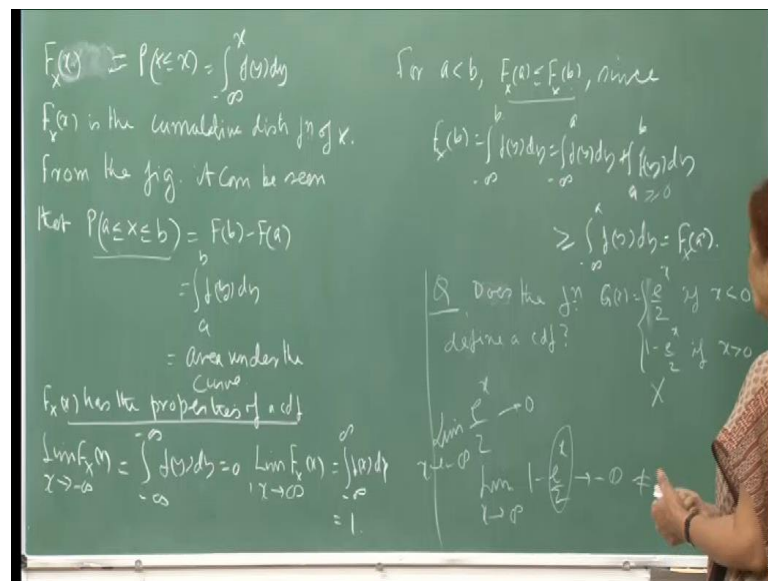 F_X(x) = P(X ≤ x) = ∫_{-∞}^{x} f(y) dy
F_X(x) is the cumulative distn fn of X.
From the fig. it can be seen
that P(a ≤ X ≤ b) = F(b) - F(a)
= ∫_{a}^{b} f(y) dy
= area under the
curve
F_X(x) has the properties of a cdf
Lim_{x→-∞} F_X(x) = ∫_{-∞}^{-∞} f(y) dy = 0 Lim_{x→∞} F_X(x) = ∫_{-∞}^{∞} f(x) dx
= 1.
For a < b, F_X(a) ≤ F_X(b), since
F_X(b) = ∫_{-∞}^{b} f(y) dy = ∫_{-∞}^{a} f(y) dy + ∫_{a}^{b} f(y) dy
≥ 0
≥ ∫_{-∞}^{a} f(y) dy = F_X(a).
Q. Does the fn G(x) = { e^x/2 if x < 0
define a cdf? 1 - e^x/2 if x > 0
X
Lim_{x→-∞} e^x/2 → 0
Lim_{x→∞} 1 - e^x/2 → -∞ ≠